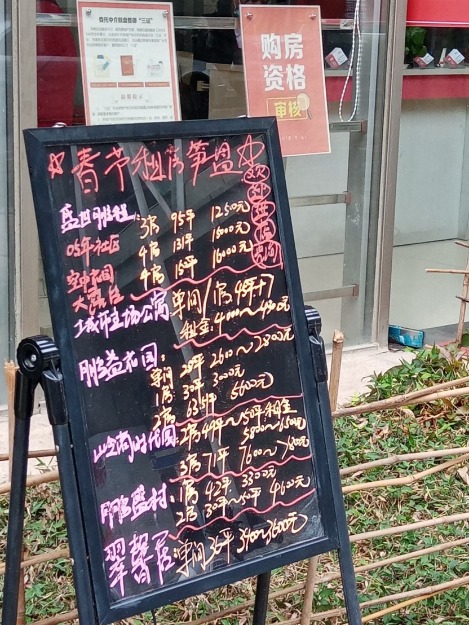 委托中介放盘需要“三证”
购房
资格
审核
☆春节租房笋盘☆
欢迎进店咨询
3房 95平 12500元
05年社区 4房 131平 15000元
空中花园 4房 15平 16000元
大露台
城市主场公寓 单间/1房 49平
租金:4000~4900元
鹏益花园:
单间 28平 2600~2800元
1房 30平 3000元
2房 63.5平 5600元
岭尚时代园: 2房49平~50平租金
5800~6500元
3房71平 7600~7800元
鹏盛村: 1房 42平 3300元
2房 30平~50平 4600元
翠馨居: 单间36平 3400~3600元